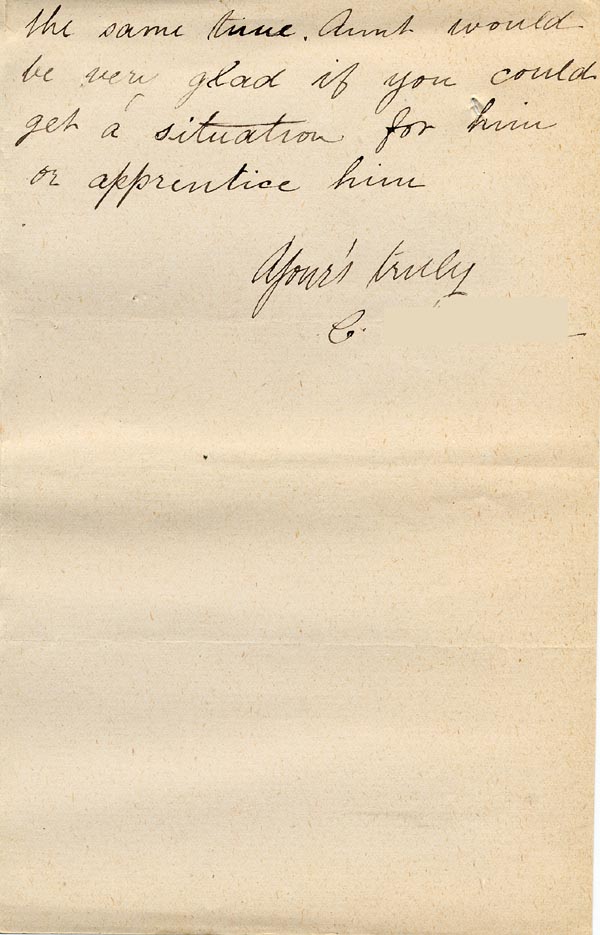 the same time. Aunt would
be very glad if you could
get a situation for him
or apprentice him
Your's truly
C.